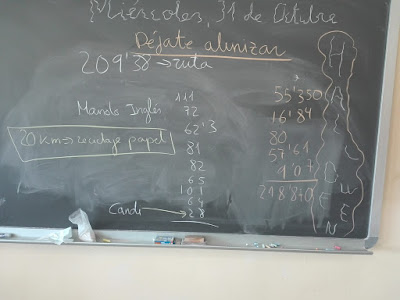 Miércoles, 31 de Octubre
Déjate alunizar
209'38 → ruta
Manolo Inglés
20 km → reciclaje papel
111
72
62'3
81
82
65
101
64
Cande → 28
55'350
16'84
80
57'61
9'07
218'870
HALLOWEEN